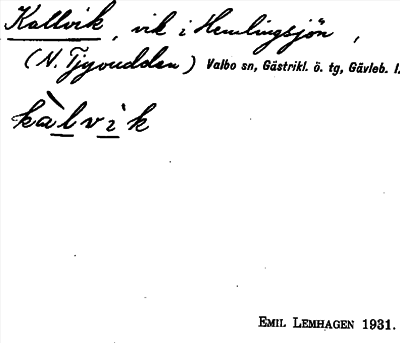 Kallvik, vik i Hemlingsjön,
(N. Tjyvudden) Valbo sn, Gästrikl. ö. tg, Gävleb. l.
kàlvìk
EMIL LEMHAGEN 1931.